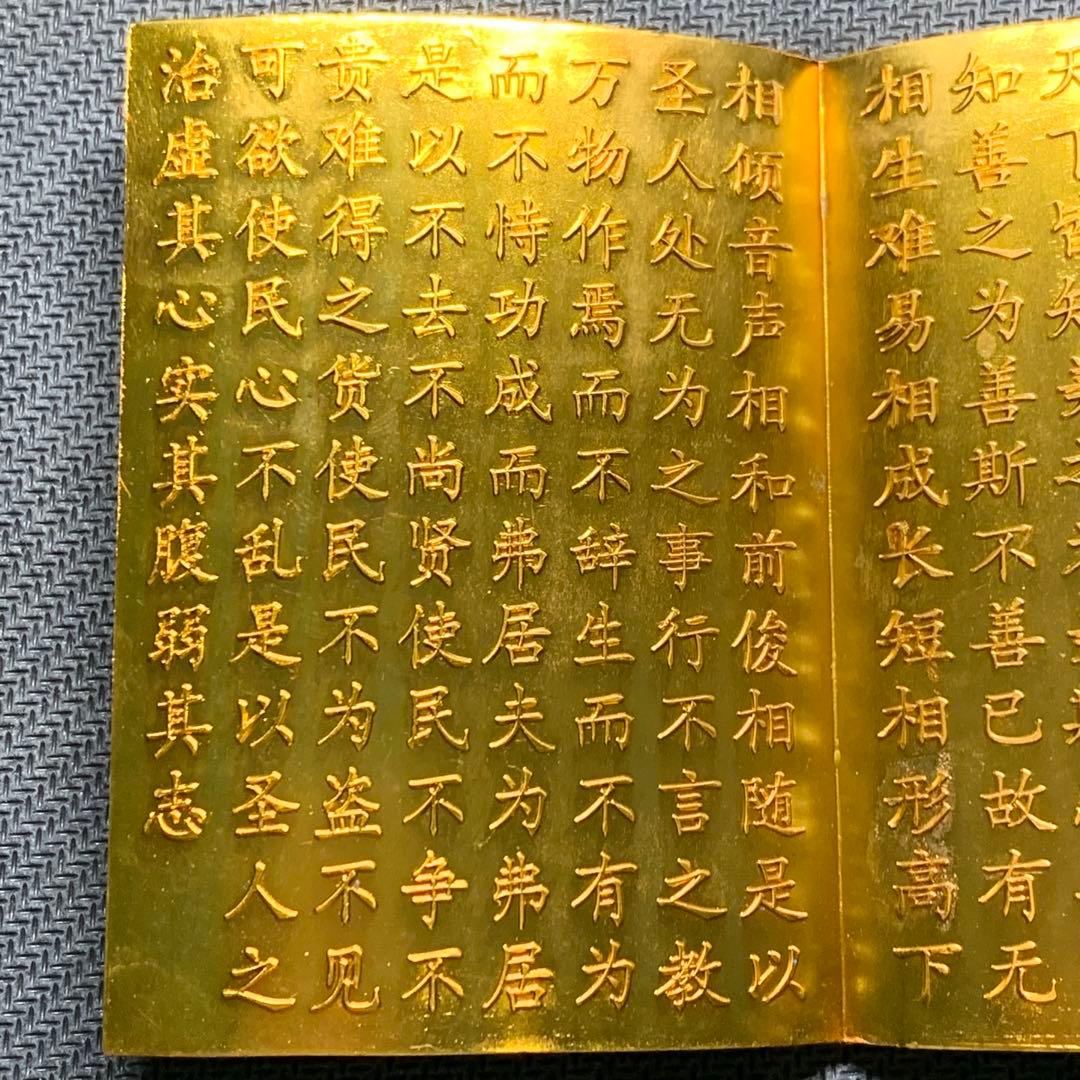 天下皆知美之
知善之为善斯不善已故有无
相生难易相成长短相形高下
相倾音声相和前俊相随是以
圣人处无为之事行不言之教
万物作焉而不辞生而不有为
而不恃功成而弗居夫为弗居
是以不去不尚贤使民不争不
贵难得之货使民不为盗不见
可欲使民心不乱是以圣人之
治虚其心实其腹弱其志